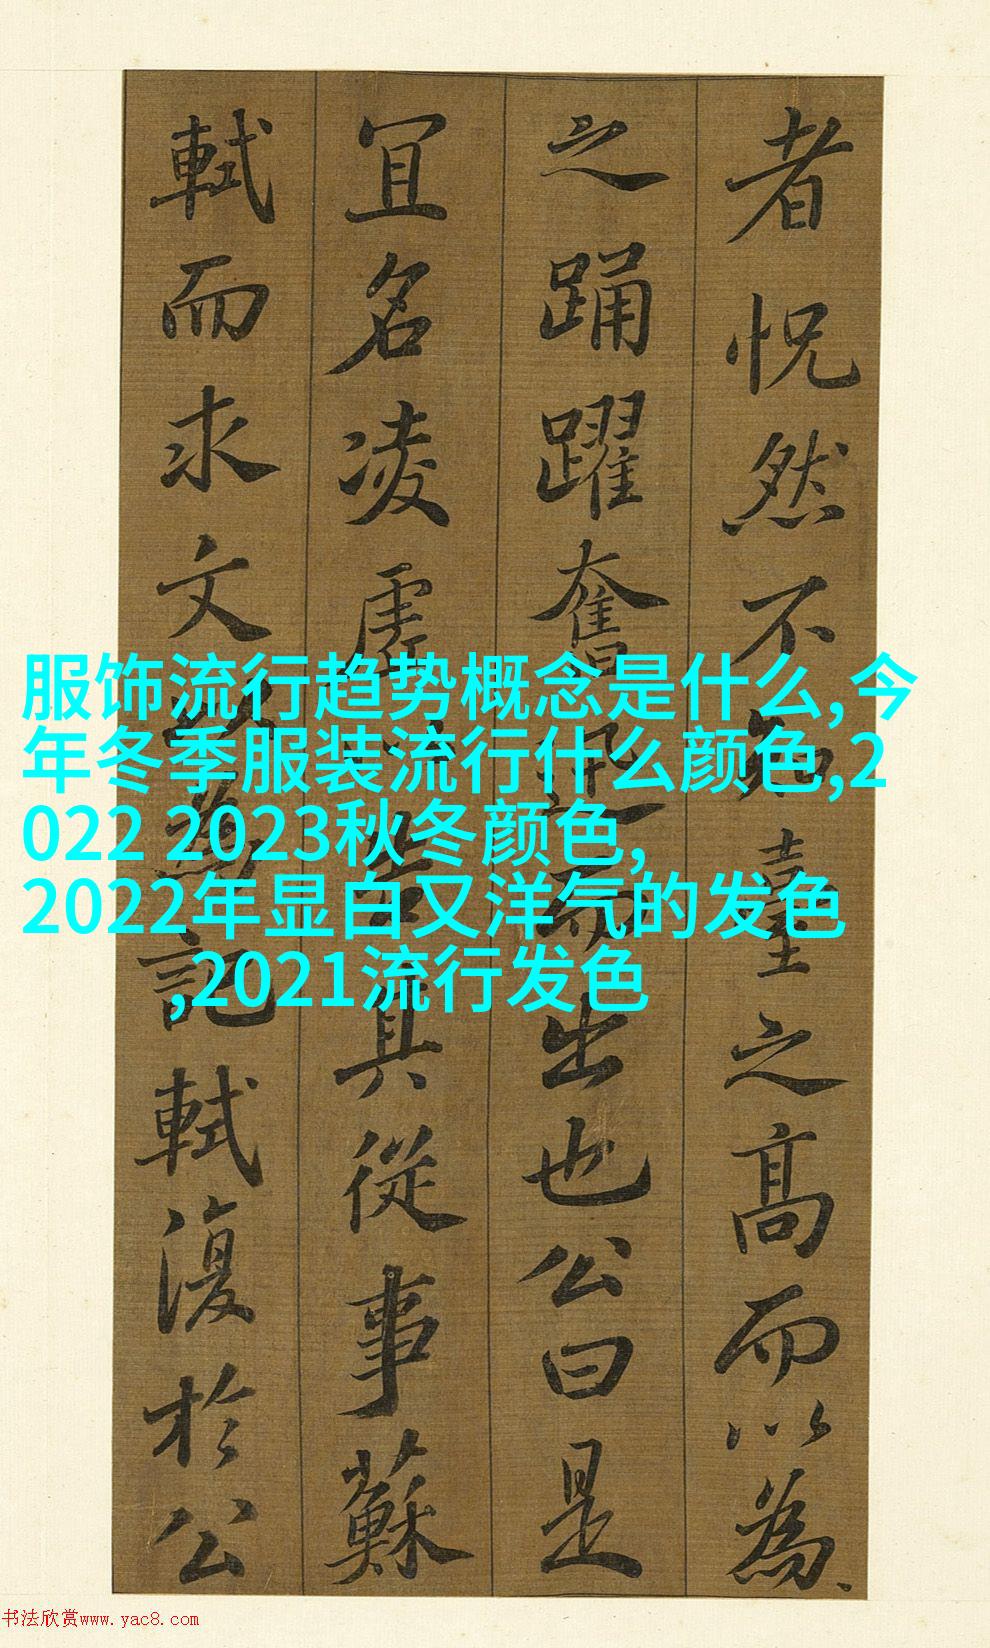 者怳然不知臺之高而以為
之踊躍奮迅而出也公曰是
宜名凌虛以告其從事蘇
軾而求文以為記軾復於公
服饰流行趋势概念是什么,今
年冬季服装流行什么颜色,2
022 2023秋冬颜色,
2022年显白又洋气的发色
,2021流行发色
书法欣赏www.yac8.com